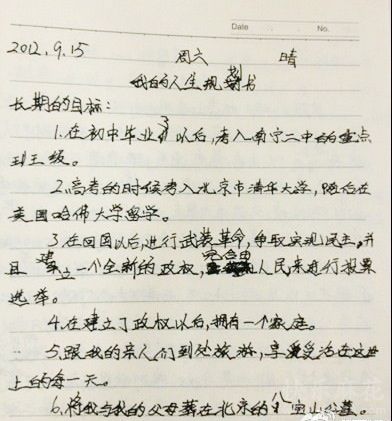 Date No.
2012.9.15 周六 晴
我的人生规划书
长期的目标：
1.在初中毕业了以后，考入南宁二中的重点
班级。
2.高考的时候考入北京市清华大学，随后在
美国哈佛大学留学。
3.在回国以后，进行武装革命，争取实现民主，并
且建立一个全新的政权，完全由人民来进行投票
选举。
4.在建立了政权以后，拥有一个家庭。
5.跟我的亲人们到处旅游，享受生活在这世
上的每一天。
6.将我与我的父母葬在北京的八宝山公墓。